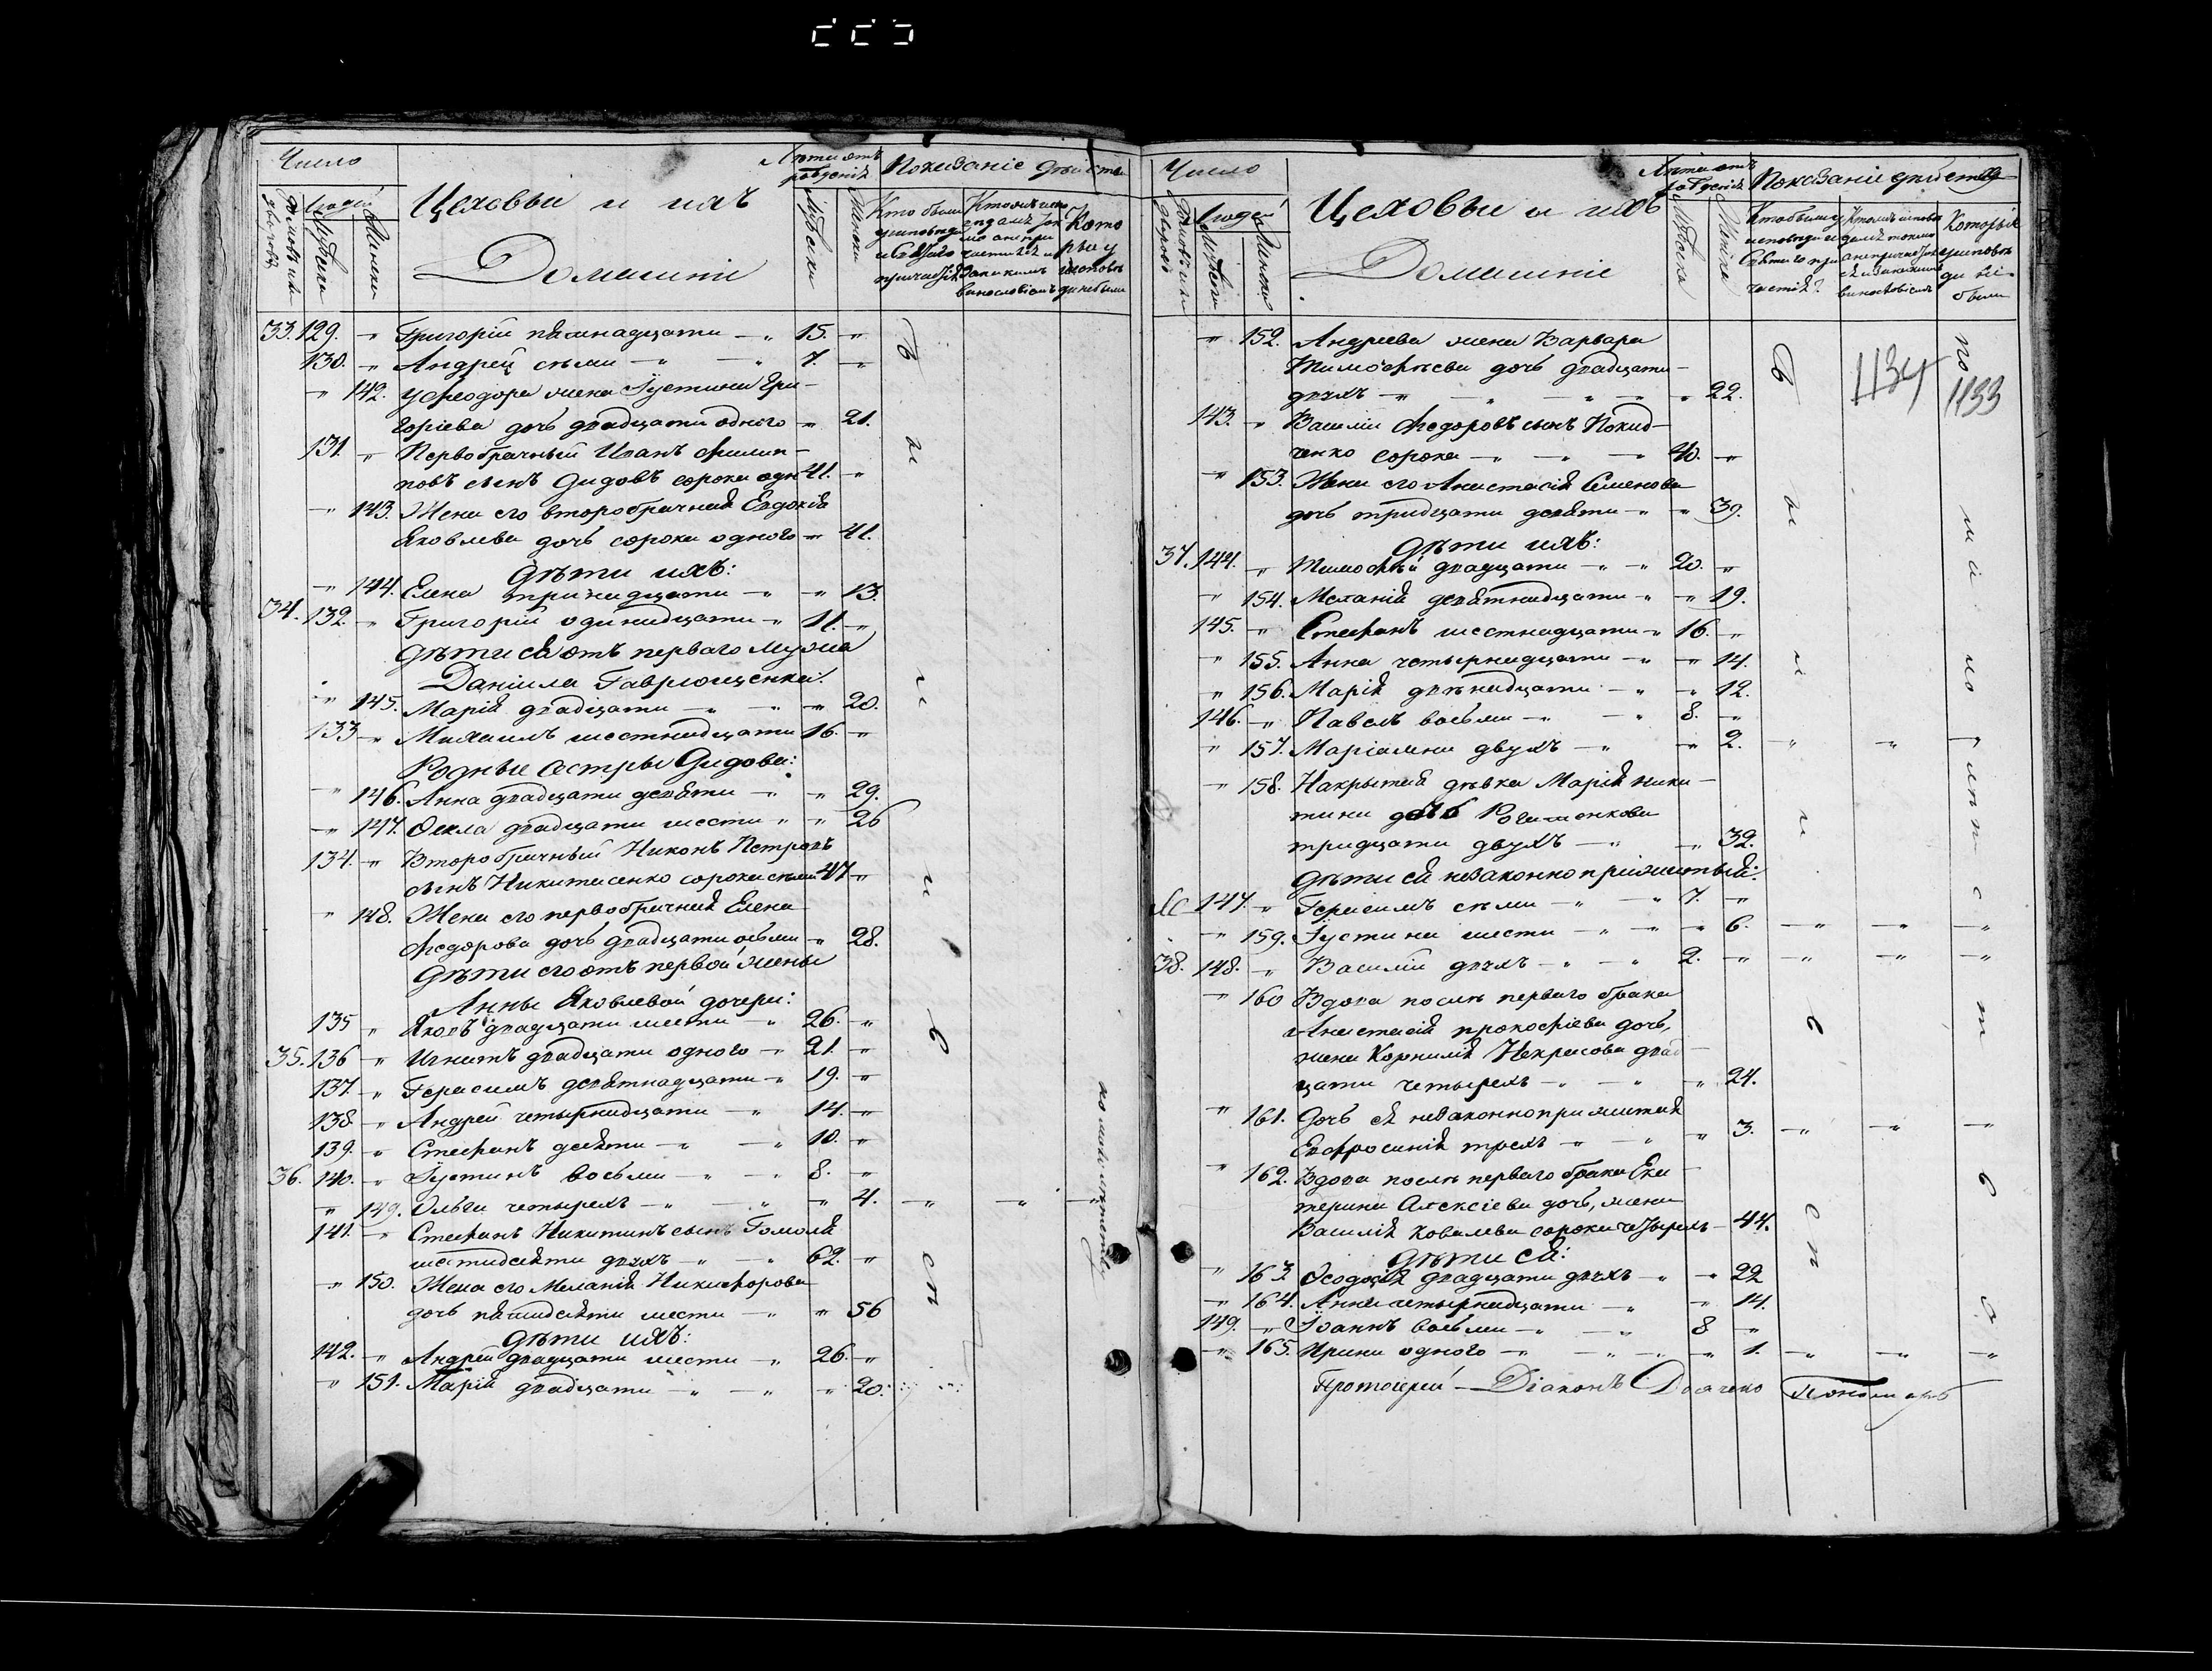 Число
Лѣта отъ рожденія
Показаніе дѣйства
Людей
Цеховые и ихъ
Домашніе
Мужеска
Женска
33. 129. " Григорій пятнадцати — " 15. "
130. " Андрей семи — " — " 7. "
" 142. У Ѳеодора жена Іустина Гри-
горіева дочь двадцати одного — " 21.
131. " Первобрачный Иванъ Филип-
повъ сынъ Дидовъ сорока одн 41. "
" 143. Жена его второбрачная Евдокія
Яковлева дочь сорока одного — " 41.
Дѣти ихъ:
" 144. Елена тринадцати — " " 13.
34. 132. " Григорій одинадцати — " 11. "
Дѣти ея отъ перваго мужа
Даніила Гаврющенка:
" 145. Марія двадцати — " — " " 20.
133 " Михаилъ шестнадцати 16. "
Родные сестры Дидова:
" 146. Анна двадцати девяти — " " 29.
" 147. Ѳекла двадцати шести " " 26
134. " Второбрачный Никонъ Петровъ
сынъ Никитченко сорока семи 47 "
" 148. Жена его первобрачная Елена
Ѳедорова дочь двадцати осьми " 28.
Дѣти его отъ первой жены
Анны Яковлевой дочери:
135 " Яковъ двадцати шести — " 26. "
35. 136 " Игнатъ двадцати одного — " 21. "
137. " Герасимъ девятнадцати — " 19. "
138. " Андрей четырнадцати — " 14. "
139. " Стефанъ десяти — " — " 10. "
36. 140. " Іустинъ восьми — " — " 8. "
" 149. Ольга четырехъ — " — " " 4. " " "
141. " Стефанъ Никитинъ сынъ Гомоля
шестидесяти двухъ — " — " 62. "
" 150. Жена его Меланія Никифорова
дочь пятидесяти шести — " " 56
Дѣти ихъ:
142. " Андрей двадцати шести — " 26. "
" 151. Марія двадцати — " — " " 20.
по малолѣтству
Число
Лѣта отъ рожденія
Показаніе дѣйства
Людей
Цеховые и ихъ
Домашніе
Мужеска
Женска
1134
1133
" 152. Андреева жена Варвара
Тимофѣева дочь двадцати
двухъ — " — " — " — " 22.
143. " Василій Ѳедоровъ сынъ
ченко сорока — " — " — " 40. "
" 153. Жена его Анастасія Семенова
дочь тридцати девяти — " " 39.
Дѣти ихъ:
37. 144. " Тимофей двадцати — " " 20. "
" 154. Меланія девятнадцати " " 19.
145. " Стефанъ шестнадцати — " 16. "
" 155. Анна четырнадцати — " " 14.
" 156. Марія двѣнадцати — " " 12.
146. " Павелъ восьми — " — " 8. "
" 157. Маріамна двухъ — " " 2. " " "
" 158. Накрытая дѣвка Марія Ники-
тина дочь
тридцати двухъ — " " 32.
Дѣти ея незаконно прижитыя:
147. " Герасимъ семи — " — " 7. "
" 159. Іустина шести — " — " " 6. " " "
38. 148. " Василій двухъ — " — " 2. " " " "
" 160 Вдова послѣ перваго брака
Анастасія Прокофіева дочь,
жена Корнилія Некрасова двад-
цати четырехъ — " — " " 24.
" 161. Дочь ея незаконноприжитая
Евфросинія трехъ — " — " " 3. " " "
" 162. Вдова послѣ перваго брака Ека-
терина Алексіева дочь, жена
Василія Ковалева сорока четырехъ — 44.
Дѣти ея:
" 163. Ѳеодосія двадцати двухъ — " " 22
" 164. Анна четырнадцати — " " 14.
149. " Іоаннъ восьми — " — " 8 "
" 165. Ирина одного — " — " " 1. " " "
Протоіерей — Діаконъ